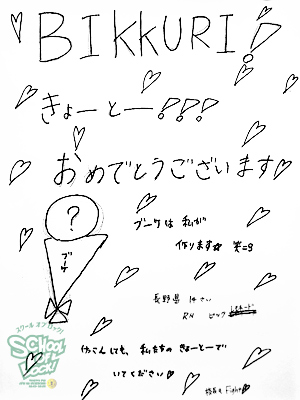 BIKKURI!
きょーとー!?!?!?
おめでとうございます♡
?
ブーケは 私が
ブーケ
作ります☆ 笑=3
長野県 14さい
RN ピンク
スクール オブ ロック!
SCHOOL OF LOCK!
けっこんしても、私たちの きょーとーで
いてください♡